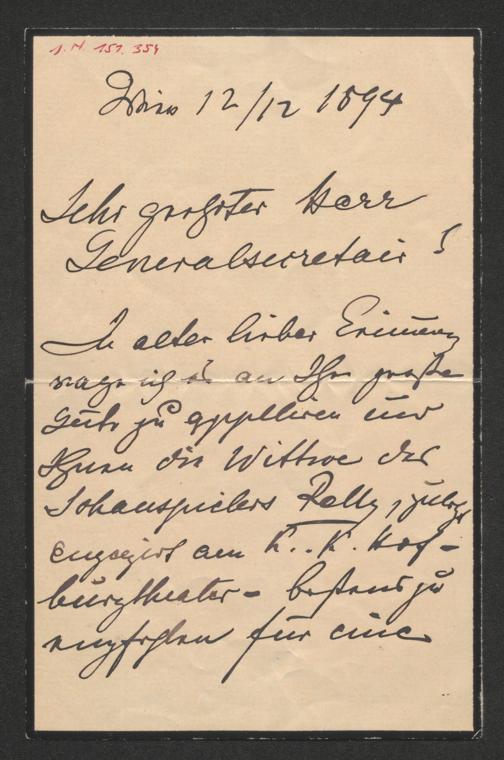 J. N. 151.354
Wien 12/12 1894
Sehr geehrter Herr
Generalsecretair!
In alter lieber Erinnerung
wage ich es an Ihre große
Güte zu appelliren und
Ihnen die Wittwe des
Schauspielers Pelly, zuletzt
engagirt am K. K. Hof-
burgtheater - bestens zu
empfehlen für eine